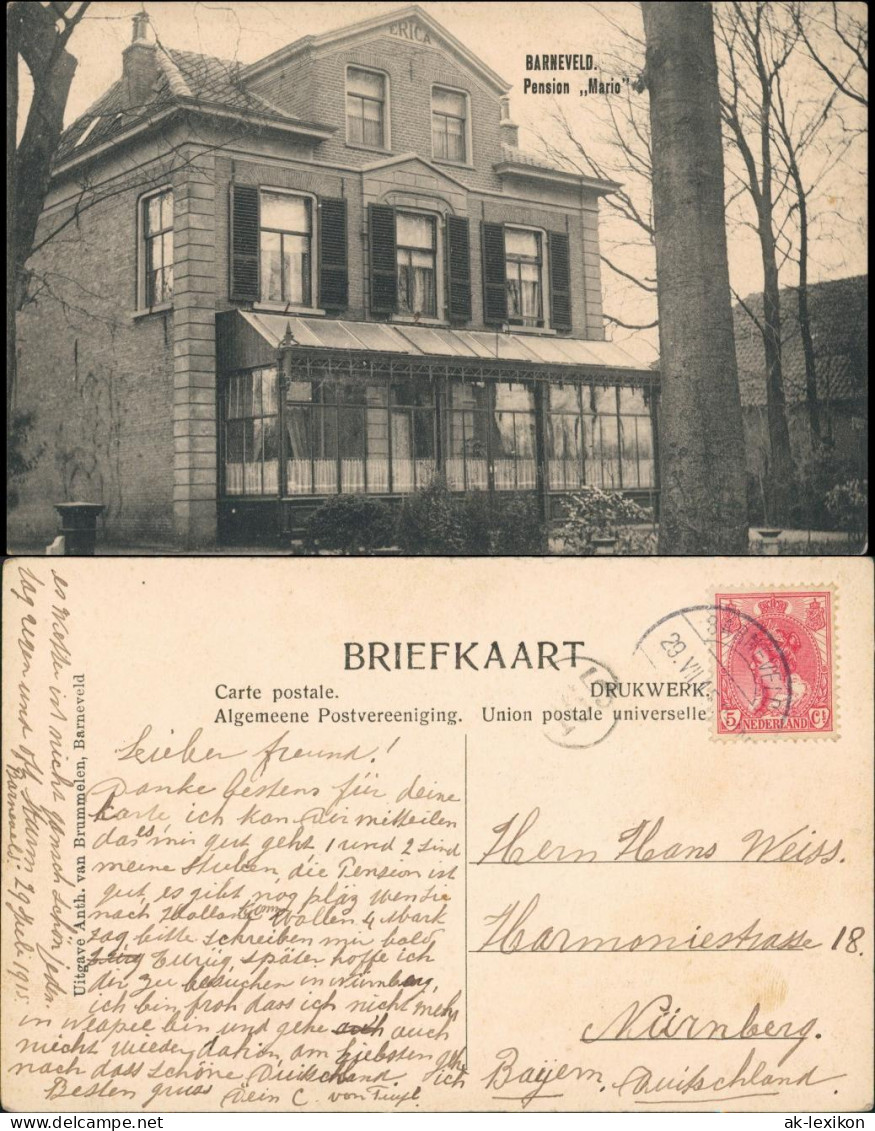 ERICA
BARNEVELD.
Pension „Mario"
BRIEFKAART
Carte postale.
DRUKWERK.
Algemeene Postvereeniging. Union postale universelle
BARNEVELD
29.VII
5 Ct
NEDERLAND
Uitgave Anth. van Brummelen, Barneveld
Lieber freund!
Danke bestens für deine
Karte ich kan Dir mitteilen
das es mir gut geht 1 und 2 sind
meine Stuben, die Pension ist
gut, es gibt nog pläz wen Sie
nach Holland kom Wollen 4 Mark
tag bitte schreiben mir bald
zurüg später hoffe ich
dir zu besuchen in Nürnberg,
ich bin froh dass ich nicht mehr
in bin und gehe auch
nicht wieder dahin, am liebsten geh
nach dass schöne Duitschland ich
Besten gruss Dein C. von Tuyl.
es wetter ist nicht ganach schön jeden
tag regen und oft sturm
Barneveld. 29 Juli 1915.
Hern Hans Weiss.
Harmoniestrasse 18.
Nürnberg.
Bayern. Duitschland.
ak-lexikon